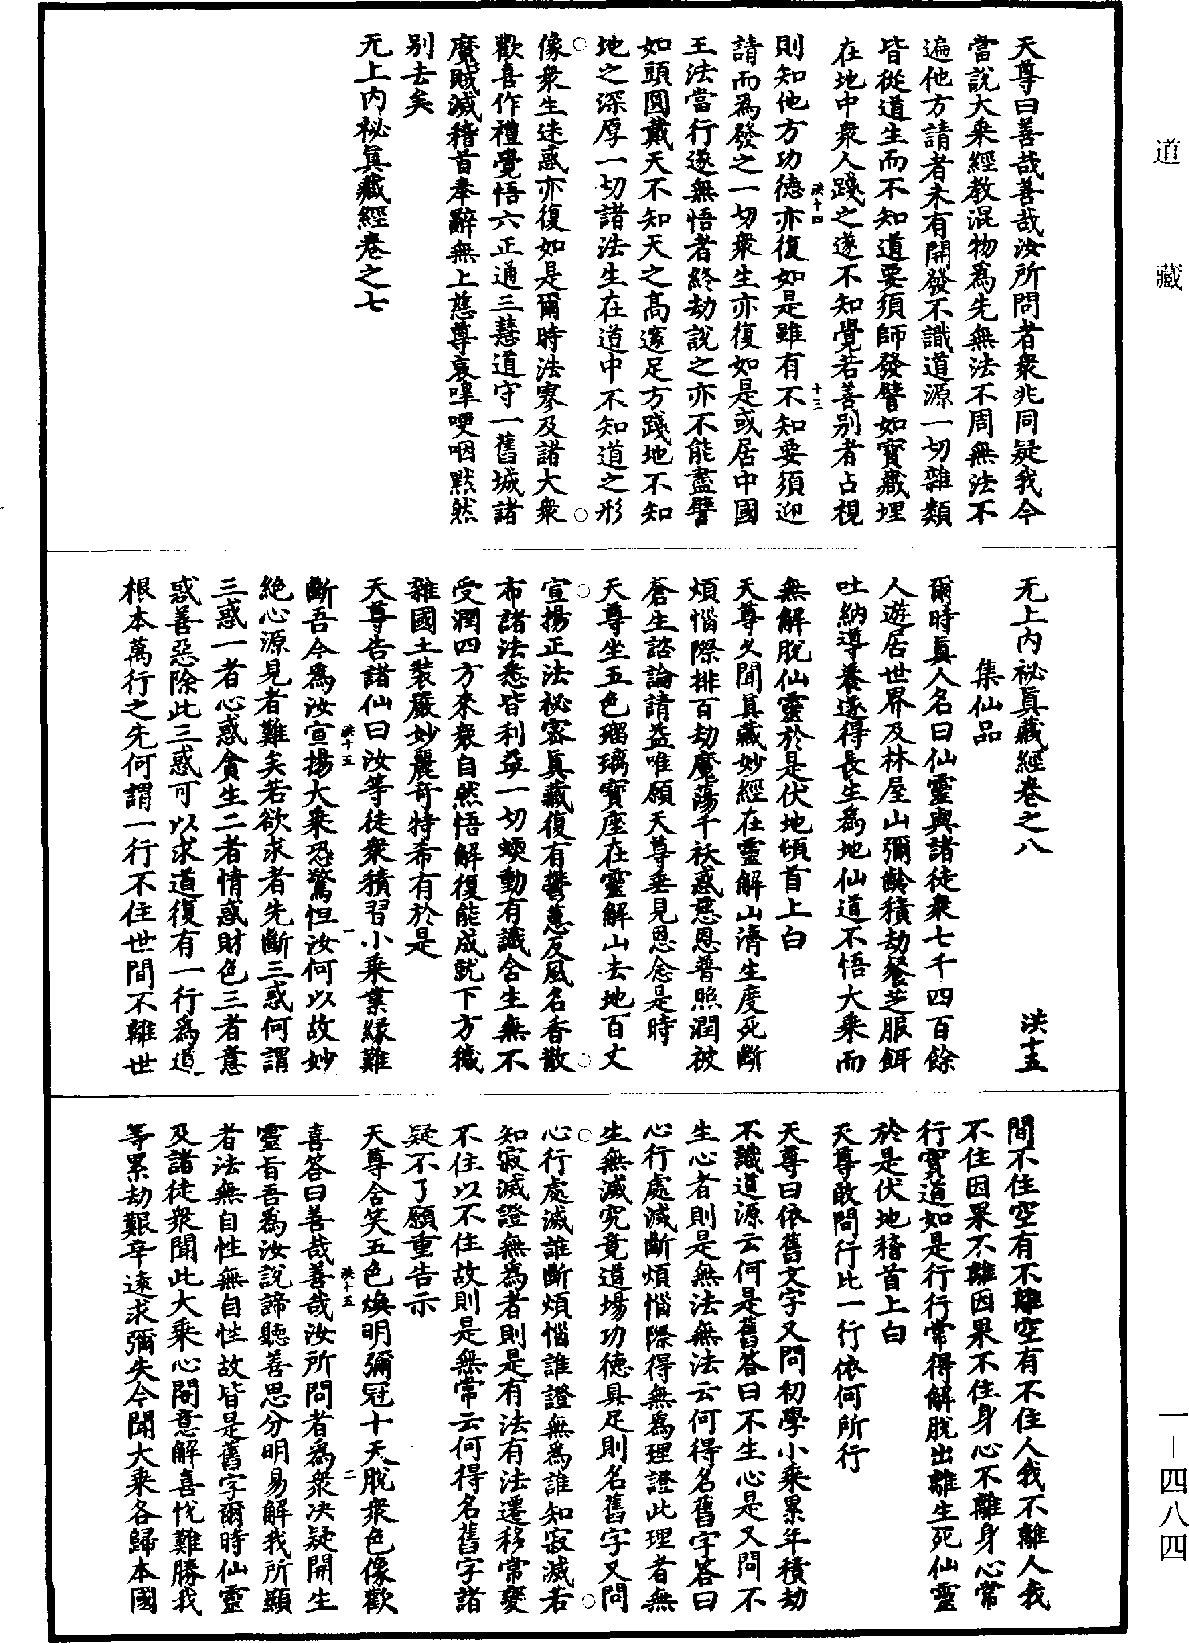 道藏
天尊曰善哉善哉汝所問者衆兆同疑我今
當說大乘經教混物爲先無法不周無法不
遍他方請者未有開發不識道源一切雜類
皆從道生而不知道要須師發譬如寶藏埋
在地中衆人踐之遂不知覺若善別者占視
則知他方功德亦復如是雖有不知要須迎
洪十四
十三
請而爲發之一切衆生亦復如是或居中國
王法當行遂無悟者終劫說之亦不能盡譬
如頭圓戴天不知天之高邃足方踐地不知
地之深厚一切諸法生在道中不知道之形
像衆生迷惑亦復如是爾時法寥及諸大衆
歡喜作禮覺悟六正通三慧道守一舊城諸
魔賊滅稽首奉辭無上慈尊哀嘷哽咽黙然
別去矣
无上內祕眞藏經卷之七
无上內祕眞藏經卷之八
洪十五
集仙品
爾時眞人名曰仙靈與諸徒衆七千四百餘
人遊居世界及林屋山彌齡積劫餐芝服餌
吐納導養遂得長生爲地仙道不悟大乘而
無解脫仙靈於是伏地頓首上白
天尊久聞眞藏妙經在靈解山濟生度死斷
煩惱際排百劫魔蕩千袄惑慈恩普照潤被
蒼生諮論請益唯願天尊垂見恩念是時
天尊坐五色瑠璃寶座在靈解山去地百丈
宣揚正法祕密眞藏復有鬱蕙反風名香散
布諸法悉皆利益一切蝡動有識含生無不
受潤四方來衆自然悟解復能成就下方穢
雜國土裝嚴妙麗奇特希有於是
天尊告諸仙曰汝等徒衆積習小乘業緣難
洪十五
一
斷吾今爲汝宣揚大乘恐驚怛汝何以故妙
絕心源見者難矣若欲求者先斷三惑何謂
三惑一者心惑貪生二者情惑財色三者意
惑善惡除此三惑可以求道復有一行爲道
根本萬行之先何謂一行不住世間不離世
間不住空有不離空有不住人我不離人我
不住因果不離因果不住身心不離身心常
行實道如是行行常得解脫出離生死仙靈
於是伏地稽首上白
天尊敢問行此一行依何所行
天尊曰依舊文字又問初學小乘累年積劫
不識道源云何是舊答曰不生心是又問不
生心者則是無法無法云何得名舊字答曰
心行處滅斷煩惱際得無爲理證此理者無
生無滅究竟道場功德具足則名舊字又問
心行處滅誰斷煩惱誰證無爲誰知寂滅若
知寂滅證無爲者則是有法有法遷移常變
不住以不住故則是無常云何得名舊字諸
疑不了願重告示
天尊含笑五色煥明彌冠十天脫衆色像歡
洪十五
二
喜答曰善哉善哉汝所問者爲衆決疑開生
靈旨吾爲汝說諦聽善思分明易解我所顯
者法無自性無自性故皆是舊字爾時仙靈
及諸徒衆聞此大乘心開意解喜悅難勝我
等累劫艱辛遠求彌失今聞大乘各歸本國
一—四八四